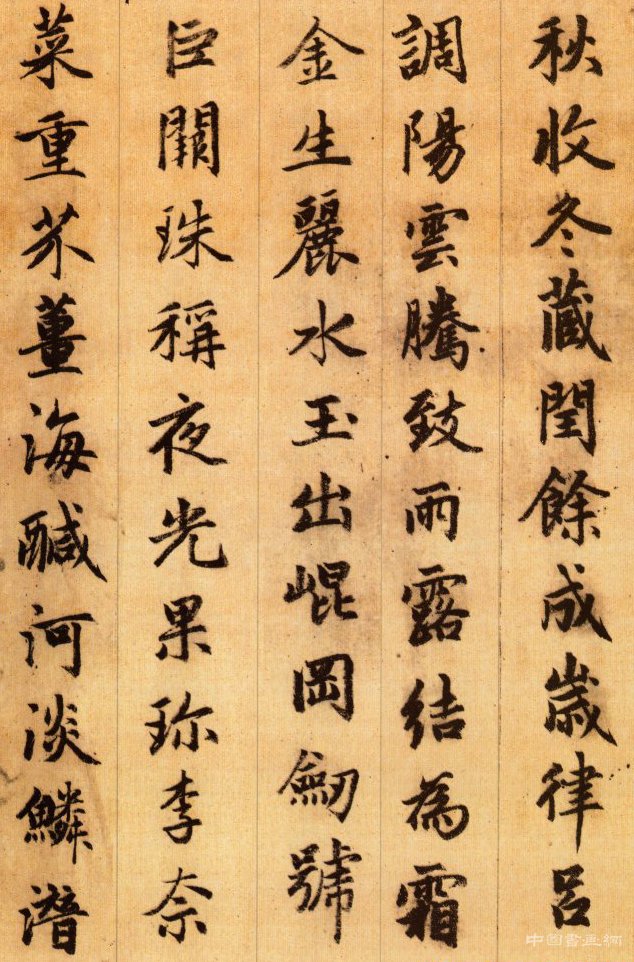 秋收冬蔵閏餘成歲律吕
調陽雲騰致雨露結為霜
金生麗水玉出崐岡劒號
巨闕珠稱夜光果珎李柰
菜重芥薑海醎河淡鱗潛
中国書画網